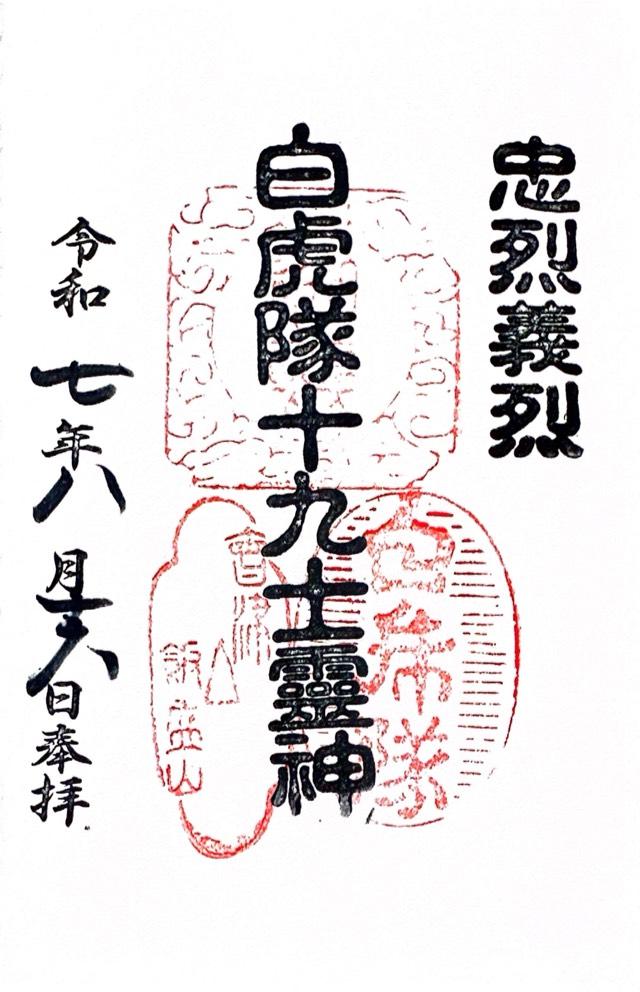 忠烈義烈
白虎隊十九士靈神
白虎隊
會津
飯盛山
令和七年八月十六日奉拝